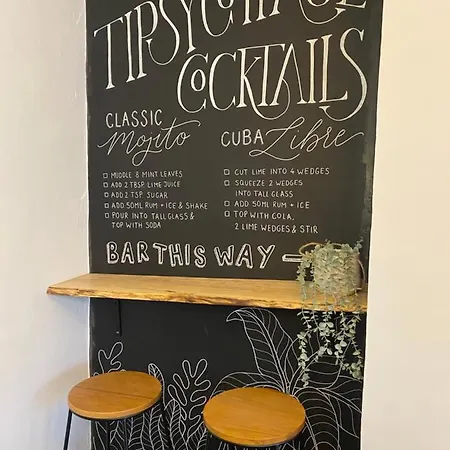 TIPSY COTTAGE
COCKTAILS
CLASSIC
Mojito
☐ MUDDLE 8 MINT LEAVES
☐ ADD 2 TBSP. LIME JUICE
☐ ADD 2 TSP. SUGAR
☐ ADD 50ML RUM + ICE & SHAKE
☐ POUR INTO TALL GLASS &
TOP WITH SODA
CUBA Libre
☐ CUT LIME INTO 4 WEDGES
☐ SQUEEZE 2 WEDGES
INTO TALL GLASS
☐ ADD 50ML RUM + ICE
☐ TOP WITH COLA,
2 LIME WEDGES & STIR
BAR THIS WAY